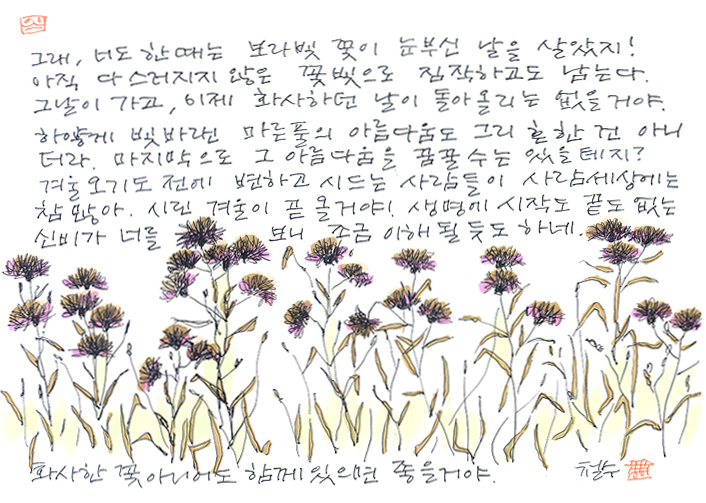 그래, 너도 한때는 보라빛 꽃이 눈부신 날을 살았지!
아직 다 스러지지 않은 꽃빛으로 짐작하고도 남는다.
그날이 가고, 이제 화사하던 날이 돌아올리는 없을거야.
하얗게 빛바래 마른풀의 아름다움도 그리 흔한 건 아니
더라. 마지막으로 그 아름다움을 꿈꿀 수는 있을 테지?
겨울 오기도 전에 변하고 시드는 사람들이 사람세상에는
참 많아. 시린 겨울이 곧 올거야! 생명에 시작도 끝도 없는
신비가 너를 보니 조금 이해될 듯도 하네.
화사한 꽃 아니어도 함께 있으면 좋을거야. 철수